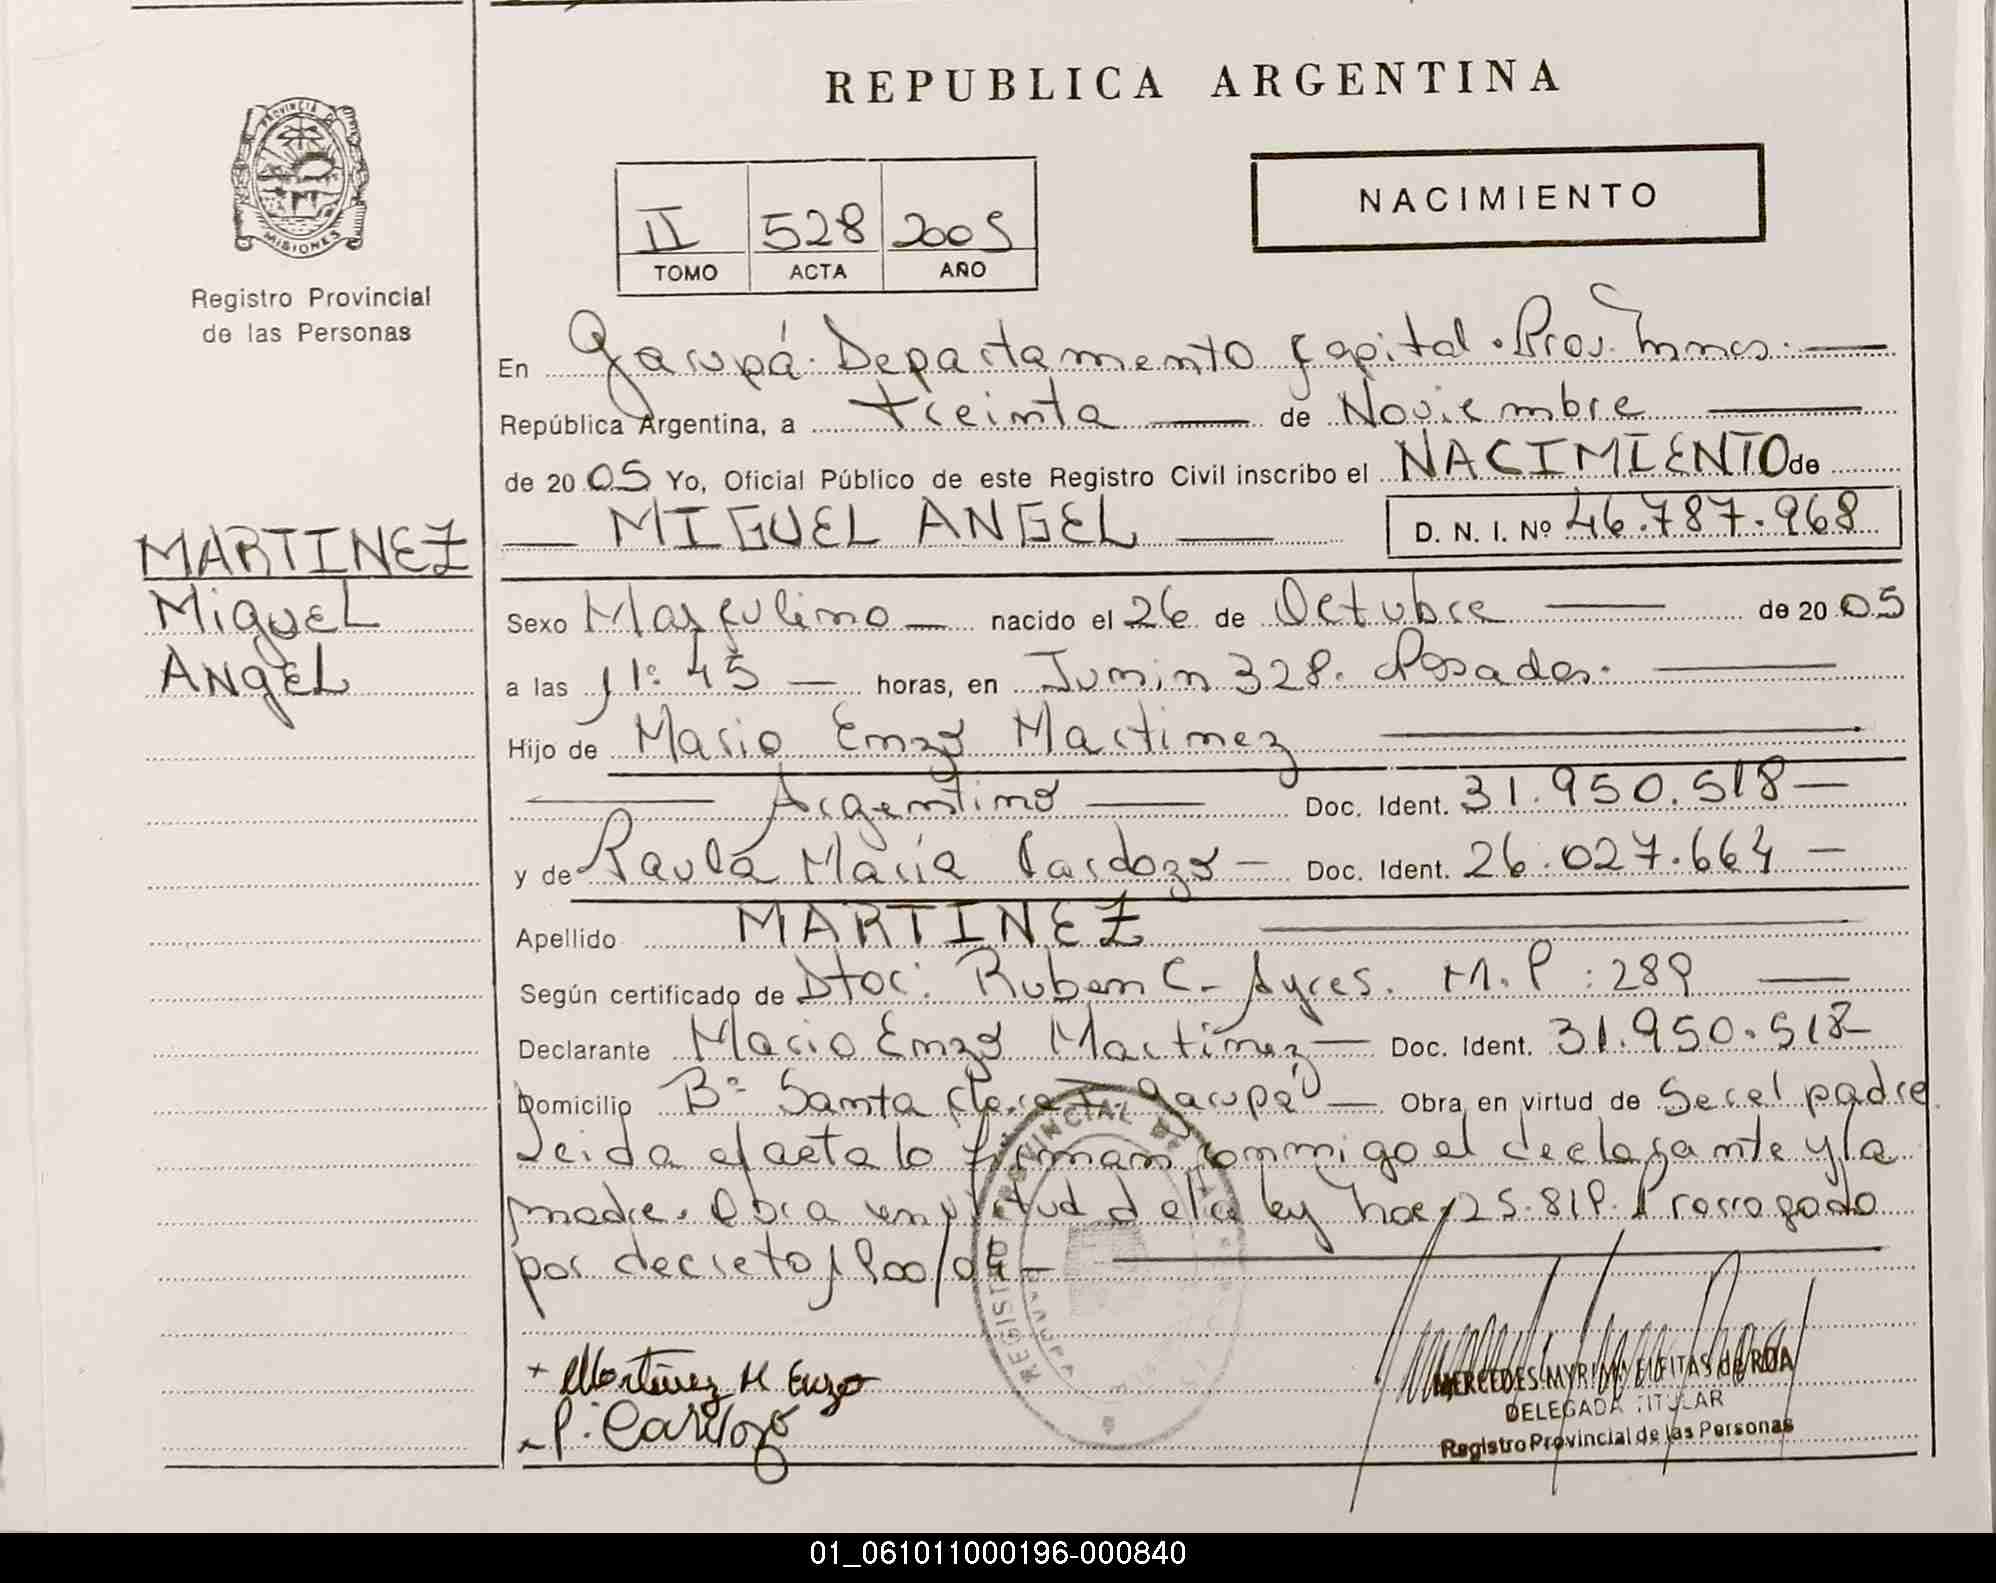 REPUBLICA ARGENTINA
PROVINCIA DE
MISIONES
Registro Provincial
de las Personas
NACIMIENTO
II 528 2005
TOMO ACTA AÑO
En Garupá. Departamento Capital. Prov. Mnes.
República Argentina, a treinta de Noviembre
de 2005 Yo, Oficial Público de este Registro Civil inscribo el NACIMIENTO de
MIGUEL ANGEL D. N. I. Nº 46.787.968
MARTINEZ
Miguel
Angel
Sexo Masculino nacido el 26 de Octubre de 2005
a las 11:45 horas, en Junin 328. Posadas.
Hijo de Mario Enzo Martinez
Argentino Doc. Ident. 31.950.518
y de Paula María Cardozo Doc. Ident. 26.027.664
Apellido MARTINEZ
Según certificado de Dtor. Ruben C. Ayres. M.P: 289
Declarante Mario Enzo Martinez Doc. Ident. 31.950.518
Domicilio Bº Santa Clara I Garupá Obra en virtud de Ser el padre
Leida el acta lo firman conmigo el declarante y la
madre. Obra en virtud de la ley nac. 25.819. Prorrogado
por decreto 1900/04
REGISTRO PROVINCIAL DE LAS
Martinez M Enzo
P. Cardozo
MERCEDES MYRIAM FREITAS de ROA
DELEGADA TITULAR
Registro Provincial de las Personas
01_061011000196-000840